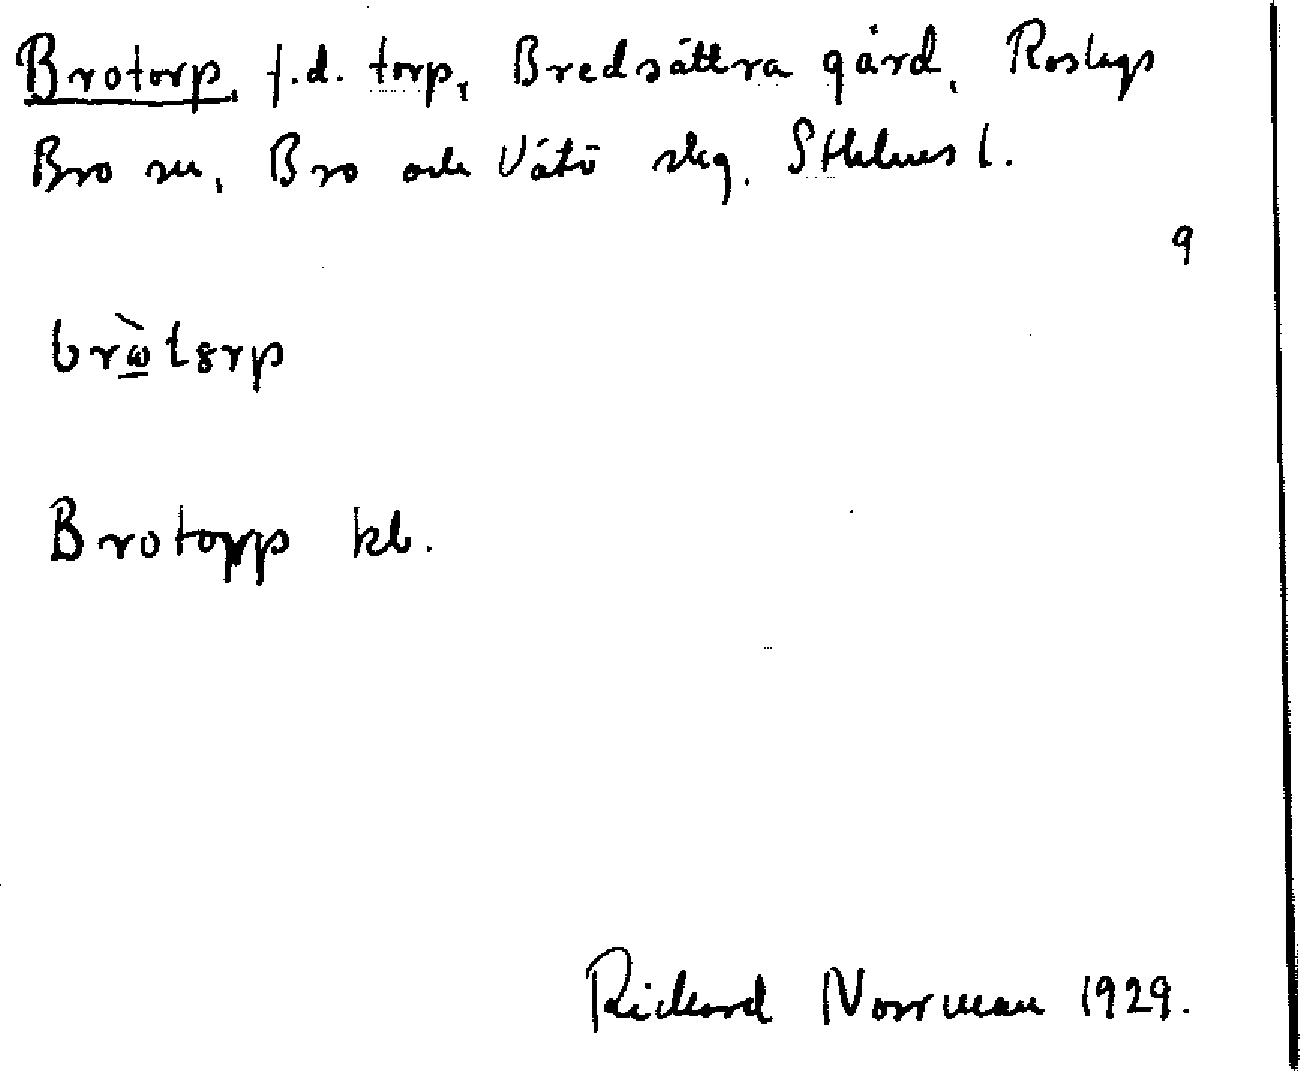 Brotorp, f.d. torp, Bredsättra gård, Roslags
Bro sn, Bro och Vätö skg. Sthlms l.
9
bròtorp
Brotorpp kb.
Rickard Norrman 1929.